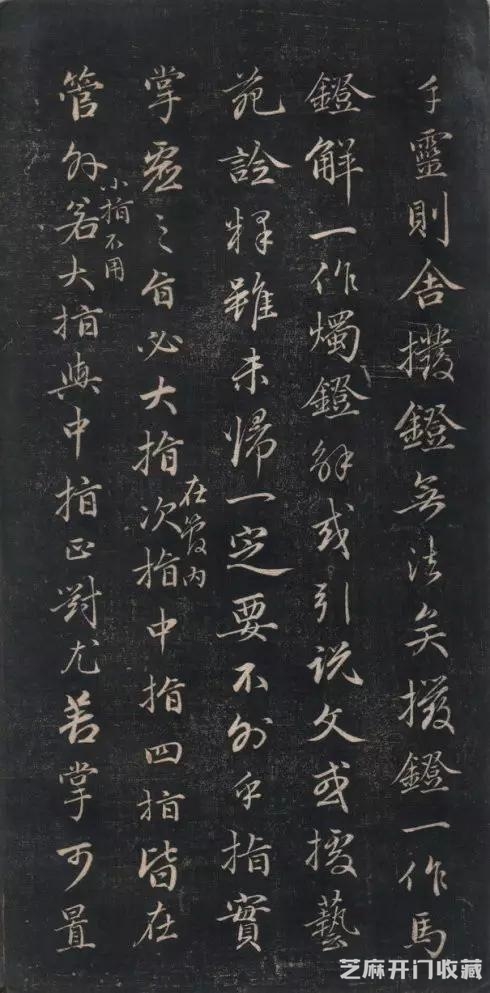 手靈則舍撥鐙無法矣撥鐙一作馬
鐙解一作燭鐙解或引説文或援藝
苑詮釋雖未歸一定要不外乎指實
掌虛之旨必大指次指中指四指皆在
在管内
管外若大指與中指正對尤善掌可置
小指不用
芝麻开门收藏